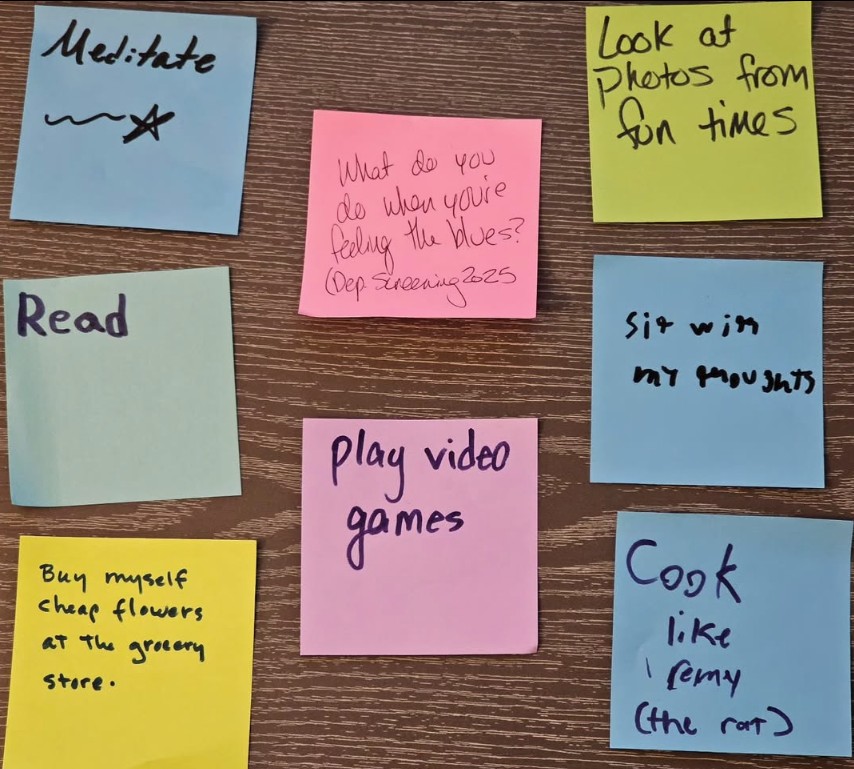 Meditate
Look at
photos from
fun times
What do you
do when you're
feeling the blues?
(Dep Screening 2025
Read
Sit with
my thoughts
play video
games
Buy myself
cheap flowers
at the grocery
store.
Cook
like
remy
(the rat)